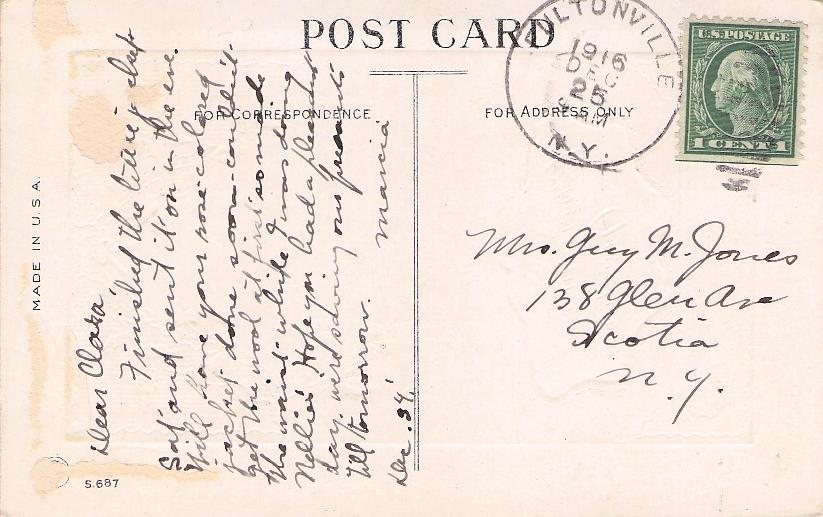 POST CARD
FOR CORRESPONDENCE
FOR ADDRESS ONLY
FULTONVILLE
1916
DEC
25
AM
N.Y.
U.S. POSTAGE
1 CENT 1
MADE IN U.S.A.
S.687
Dear Clara,
Finished the
Sat and sent it on in the eve.
Will have your rose colored
jacket done soon – couldn't
get the wool at first – made
the waist while I was doing
Nellie's Hope you had a pleasant
day. were saving our presents
till tomorrow. Marcia
Dec. 24,
Mrs. Guy M. Jones
138 Glen Ave
Scotia
N.Y.